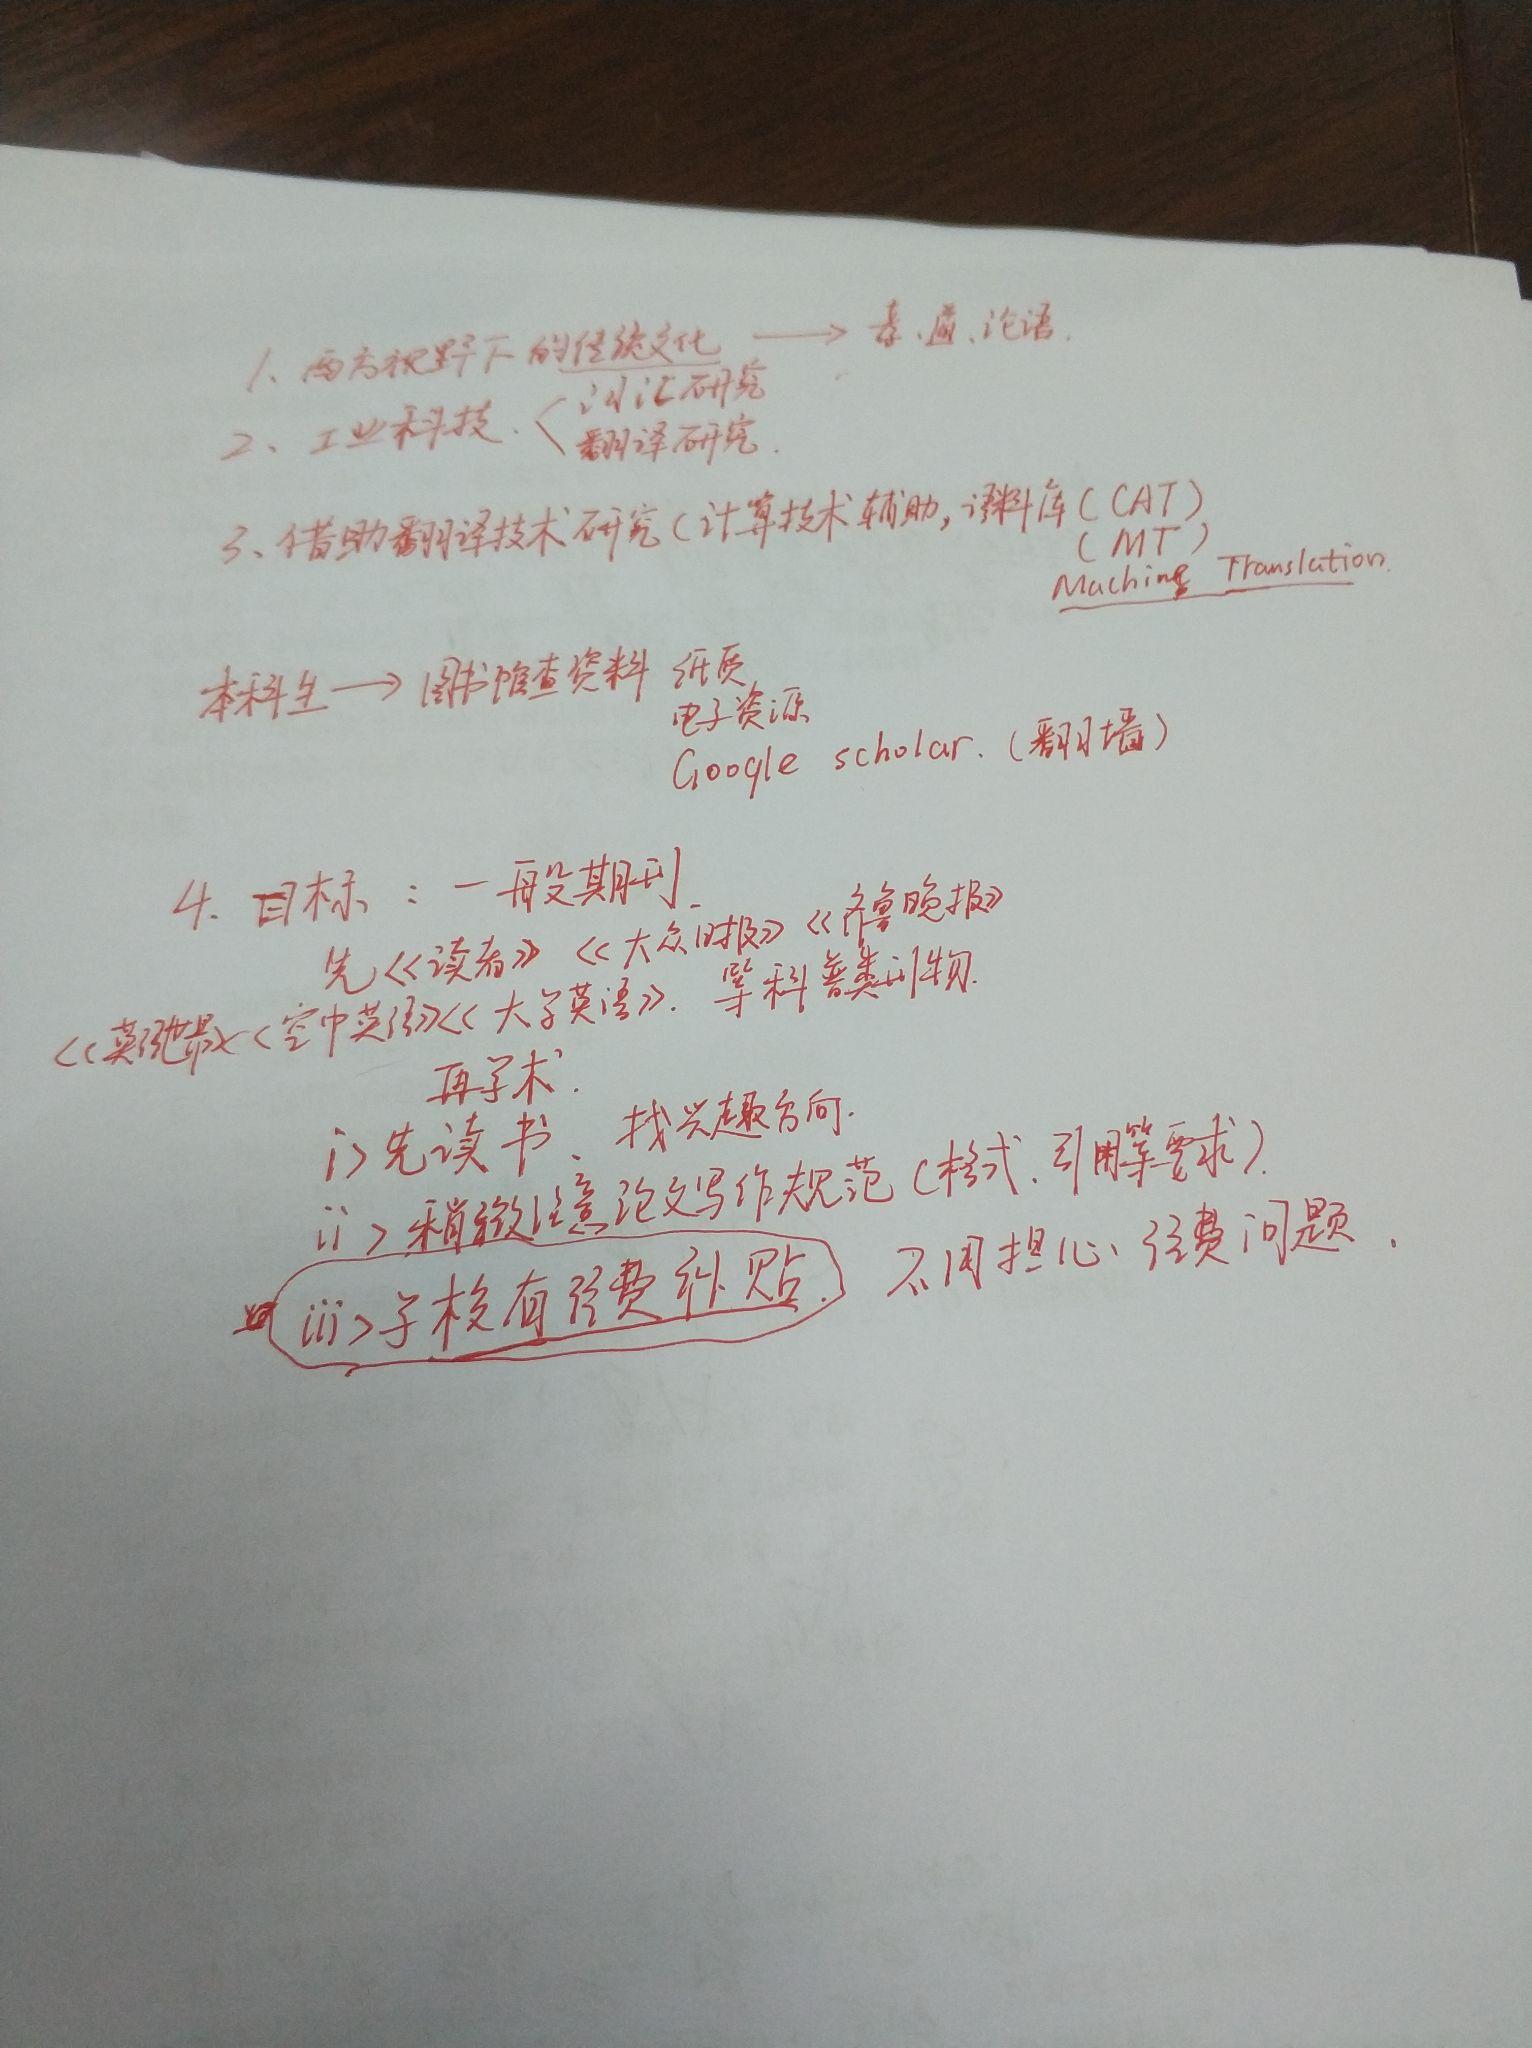 1、西方视野下的传统文化 → 孝、道、论语.
2、工业科技. < 词汇研究
翻译研究.
3、借助翻译技术研究(计算技术辅助,语料库(CAT)
(MT)
Machine Translation.
本科生 → 图书馆查资料 纸质
电子资源
Google scholar.(翻墙)
4. 目标:一般期刊.
先《读者》《大众日报》《齐鲁晚报》
《英语世界》《空中英语》《大学英语》. 等科普类刊物.
再学术.
i> 先读书、找兴趣方向.
ii> 稍微注意论文写作规范(格式、引用等要求).
iii> 学校有经费补贴. 不用担心经费问题.